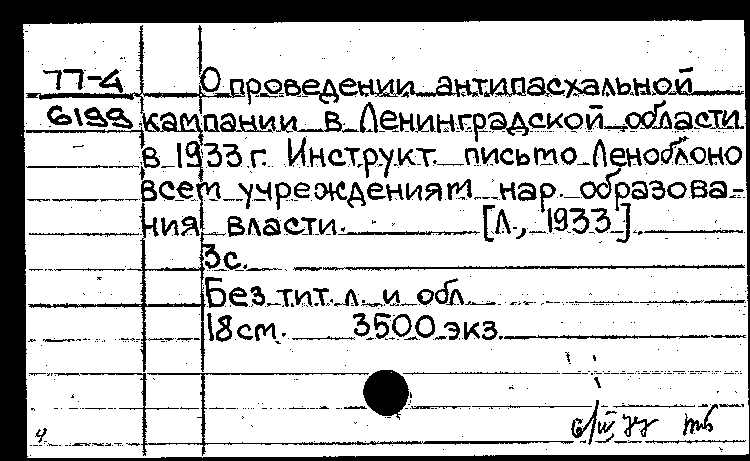 77-4
6199
О проведении антипасхальной
кампании в Ленинградской области
в 1933 г. Инструкт. письмо Леноблоно
всем учреждениям нар. образова-
ния власти. [Л., 1933].
3с.
Без тит. л. и обл.
18 см. 3500 экз.
4